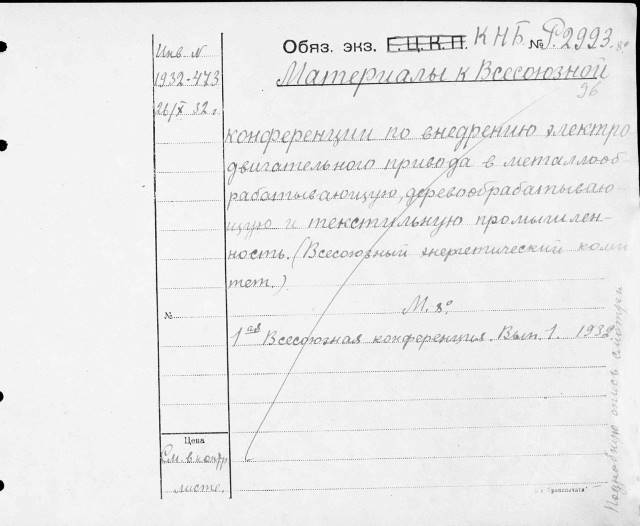 Инв. N
1932-473
26/X 32 г.
Обяз. экз. Г.Ц.К.П. КНБ. № Р.2993. 8°
Материалы к Всесоюзной
96
конференции по внедрению электро
двигательного привода в металлооб-
рабатывающую, деревообрабатываю-
щую и текстильную промышлен-
ность. (Всесоюзный энергетический коми
тет.)
М. 8°
№
1ая Всесоюзная конференция. Вып. 1. 1932
Цена
См. в контр
листе.
Подробную опись смотри